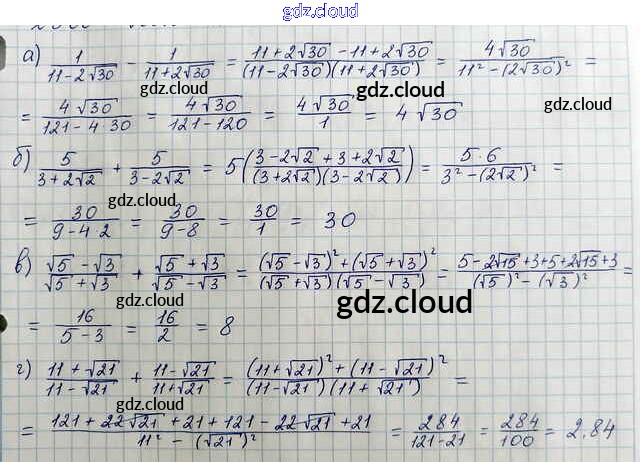 gdz.cloud
а) 1/(11-2√30) - 1/(11+2√30) = (11+2√30 - 11+2√30)/((11-2√30)(11+2√30)) = 4√30/(11² - (2√30)²) =
gdz.cloud
gdz.cloud
= 4√30/(121-4·30) = 4√30/(121-120) = 4√30/1 = 4√30
gdz.cloud
gdz.cloud
б) 5/(3+2√2) + 5/(3-2√2) = 5((3-2√2+3+2√2)/((3+2√2)(3-2√2))) = 5·6/(3²-(2√2)²) =
gdz.cloud
= 30/(9-4·2) = 30/(9-8) = 30/1 = 30
gdz.cloud
в) (√5-√3)/(√5+√3) + (√5+√3)/(√5-√3) = ((√5-√3)²+(√5+√3)²)/((√5+√3)(√5-√3)) = (5-2√15+3+5+2√15+3)/((√5)²-(√3)²) =
gdz.cloud
gdz.cloud
= 16/(5-3) = 16/2 = 8
г) (11+√21)/(11-√21) + (11-√21)/(11+√21) = ((11+√21)²+(11-√21)²)/((11-√21)(11+√21)) =
gdz.cloud
gdz.cloud
= (121+22√21+21+121-22√21+21)/(11²-(√21)²) = 284/(121-21) = 284/100 = 2,84
gdz.cloud
gdz.cloud